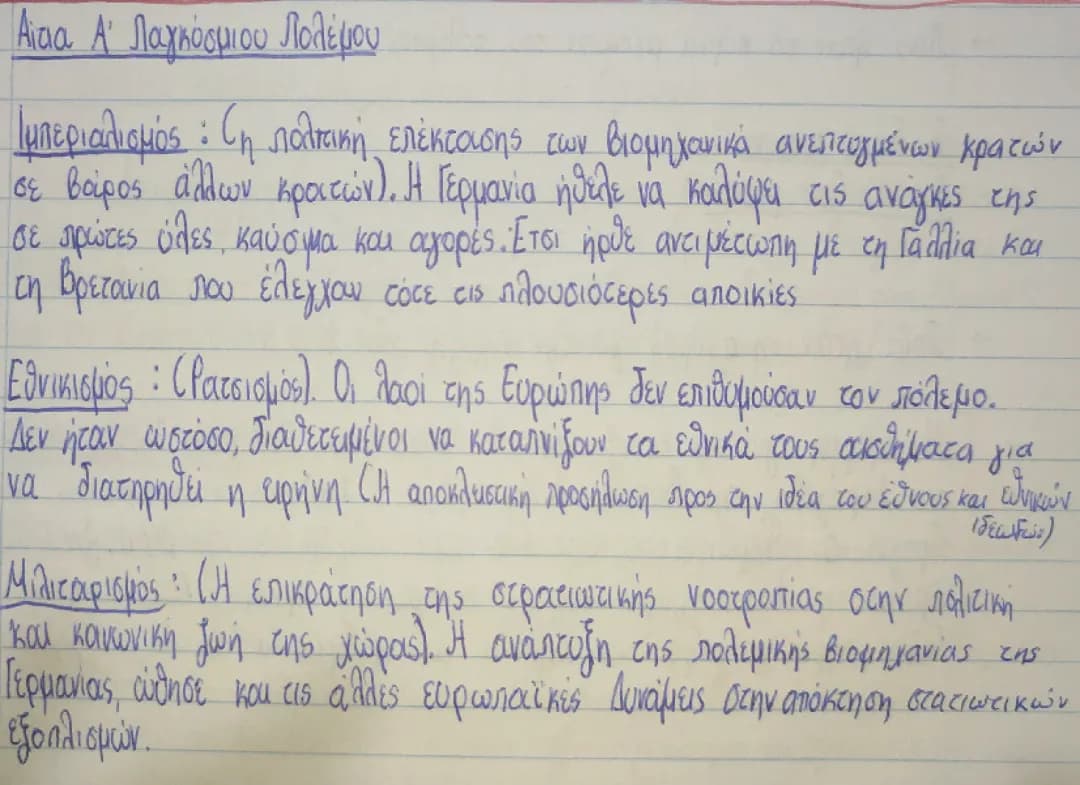 Αίτια Α' Παγκόσμιου Πολέμου
Ιμπεριαλισμός : (η πολιτική επέκτασης των βιομηχανικά ανεπτυγμένων κρατών
σε βάρος άλλων κρατών). Η Γερμανία ήθελε να καλύψει τις ανάγκες της
σε πρώτες ύλες, καύσιμα και αγορές. Έτσι ήρθε αντιμέτωπη με τη Γαλλία και
τη Βρετανία που έλεγχαν τότε τις πλουσιότερες αποικίες
Εθνικισμός : (Ρατσισμός). Οι λαοί της Ευρώπης δεν επιθυμούσαν τον πόλεμο.
Δεν ήταν ωστόσο, διαθετειμένοι να καταπνίξουν τα εθνικά τους αισθήματα για
να διατηρηθεί η ειρήνη (Η αποκλειστική προσήλωση προς την ιδέα του έθνους και εθνικών
ιδεωδών)
Μιλιταρισμός : (Η επικράτηση της στρατιωτικής νοοτροπίας στην πολιτική
και κανωνική ζωή της χώρας). Η ανάπτυξη της πολεμικής βιομηχανίας της
Γερμανίας, ώθησε και τις άλλες ευρωπαϊκές Δυνάμεις στην απόκτηση στατιωτικών
εξοπλισμών.